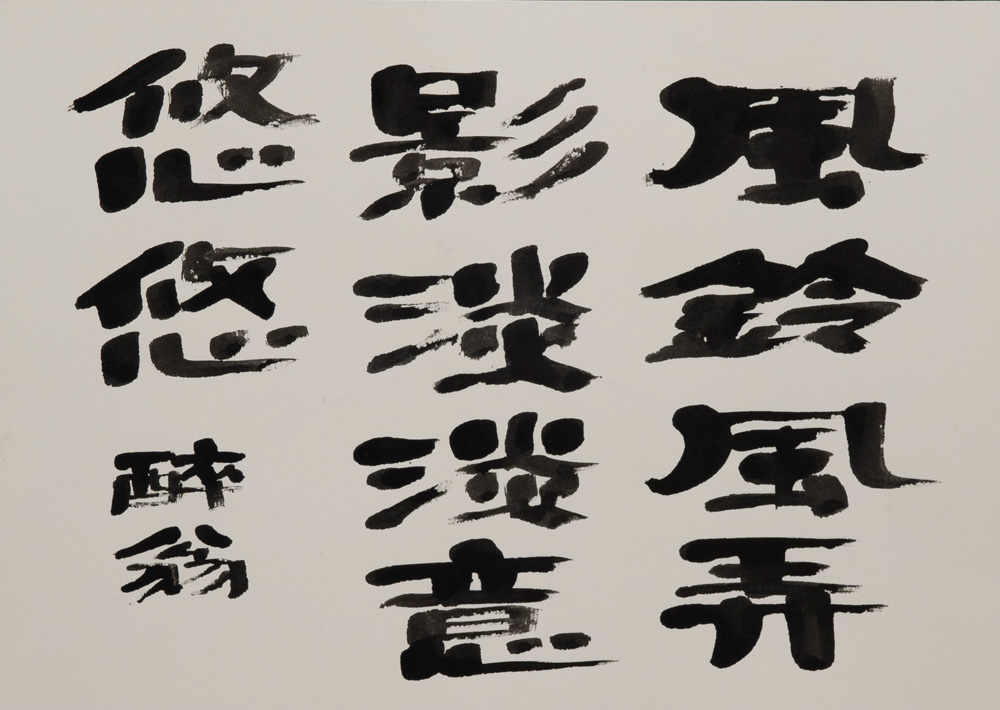 風鈴風弄
影淡淡意
悠悠
醉翁